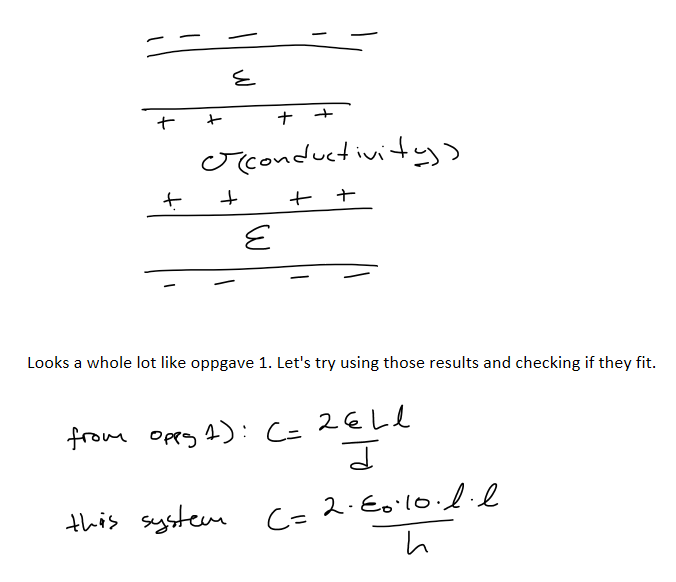 − − − − −
ε
+ + + +
σ(conductivity)
+ + + +
ε
− − − −
Looks a whole lot like oppgave 1. Let's try using those results and checking if they fit.
from oppg 1): C = 2εLl / d
this system C = 2·ε₀·10·l·l / h